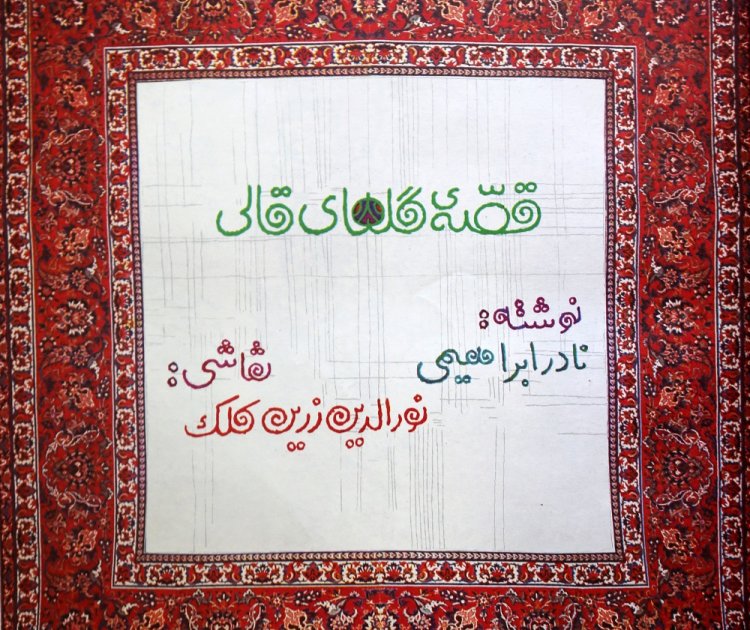 قصّهٔ گلهای قالی
نوشته:
نادر ابراهیمی
نقاشی:
نورالدین زرین کلک